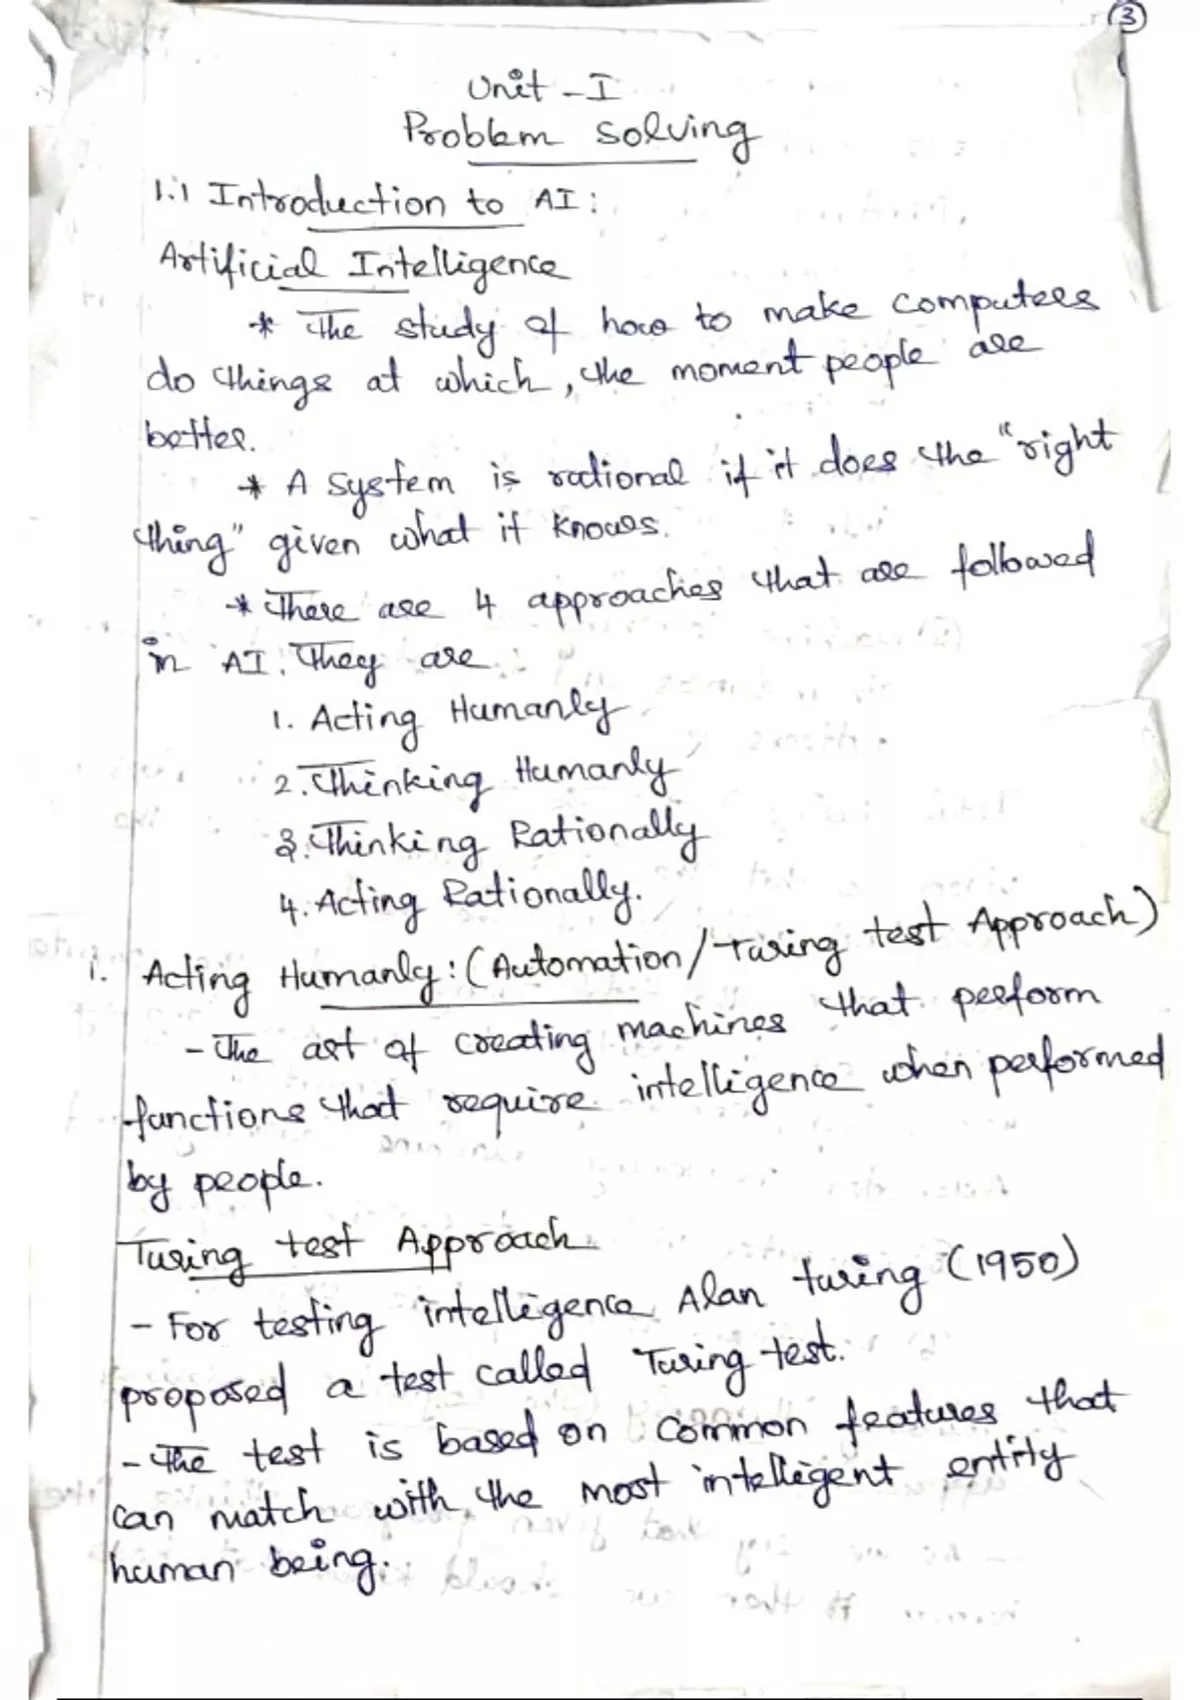 3
Unit - I
Problem Solving
1.1 Introduction to AI :
Artificial Intelligence
* The study of how to make computers
do things at which, the moment people are
better.
* A system is rational if it does the "right
thing" given what it knows.
* There are 4 approaches that are followed
in AI. They are
1. Acting Humanly
2. Thinking Humanly
3. Thinking Rationally
4. Acting Rationally.
1. Acting Humanly : (Automation / Turing test Approach)
- The art of creating machines that perform
functions that require intelligence when performed
by people.
Turing test Approach
- For testing intelligence Alan turing (1950)
proposed a test called Turing test.
- The test is based on common features that
can match with the most intelligent entity
human being.